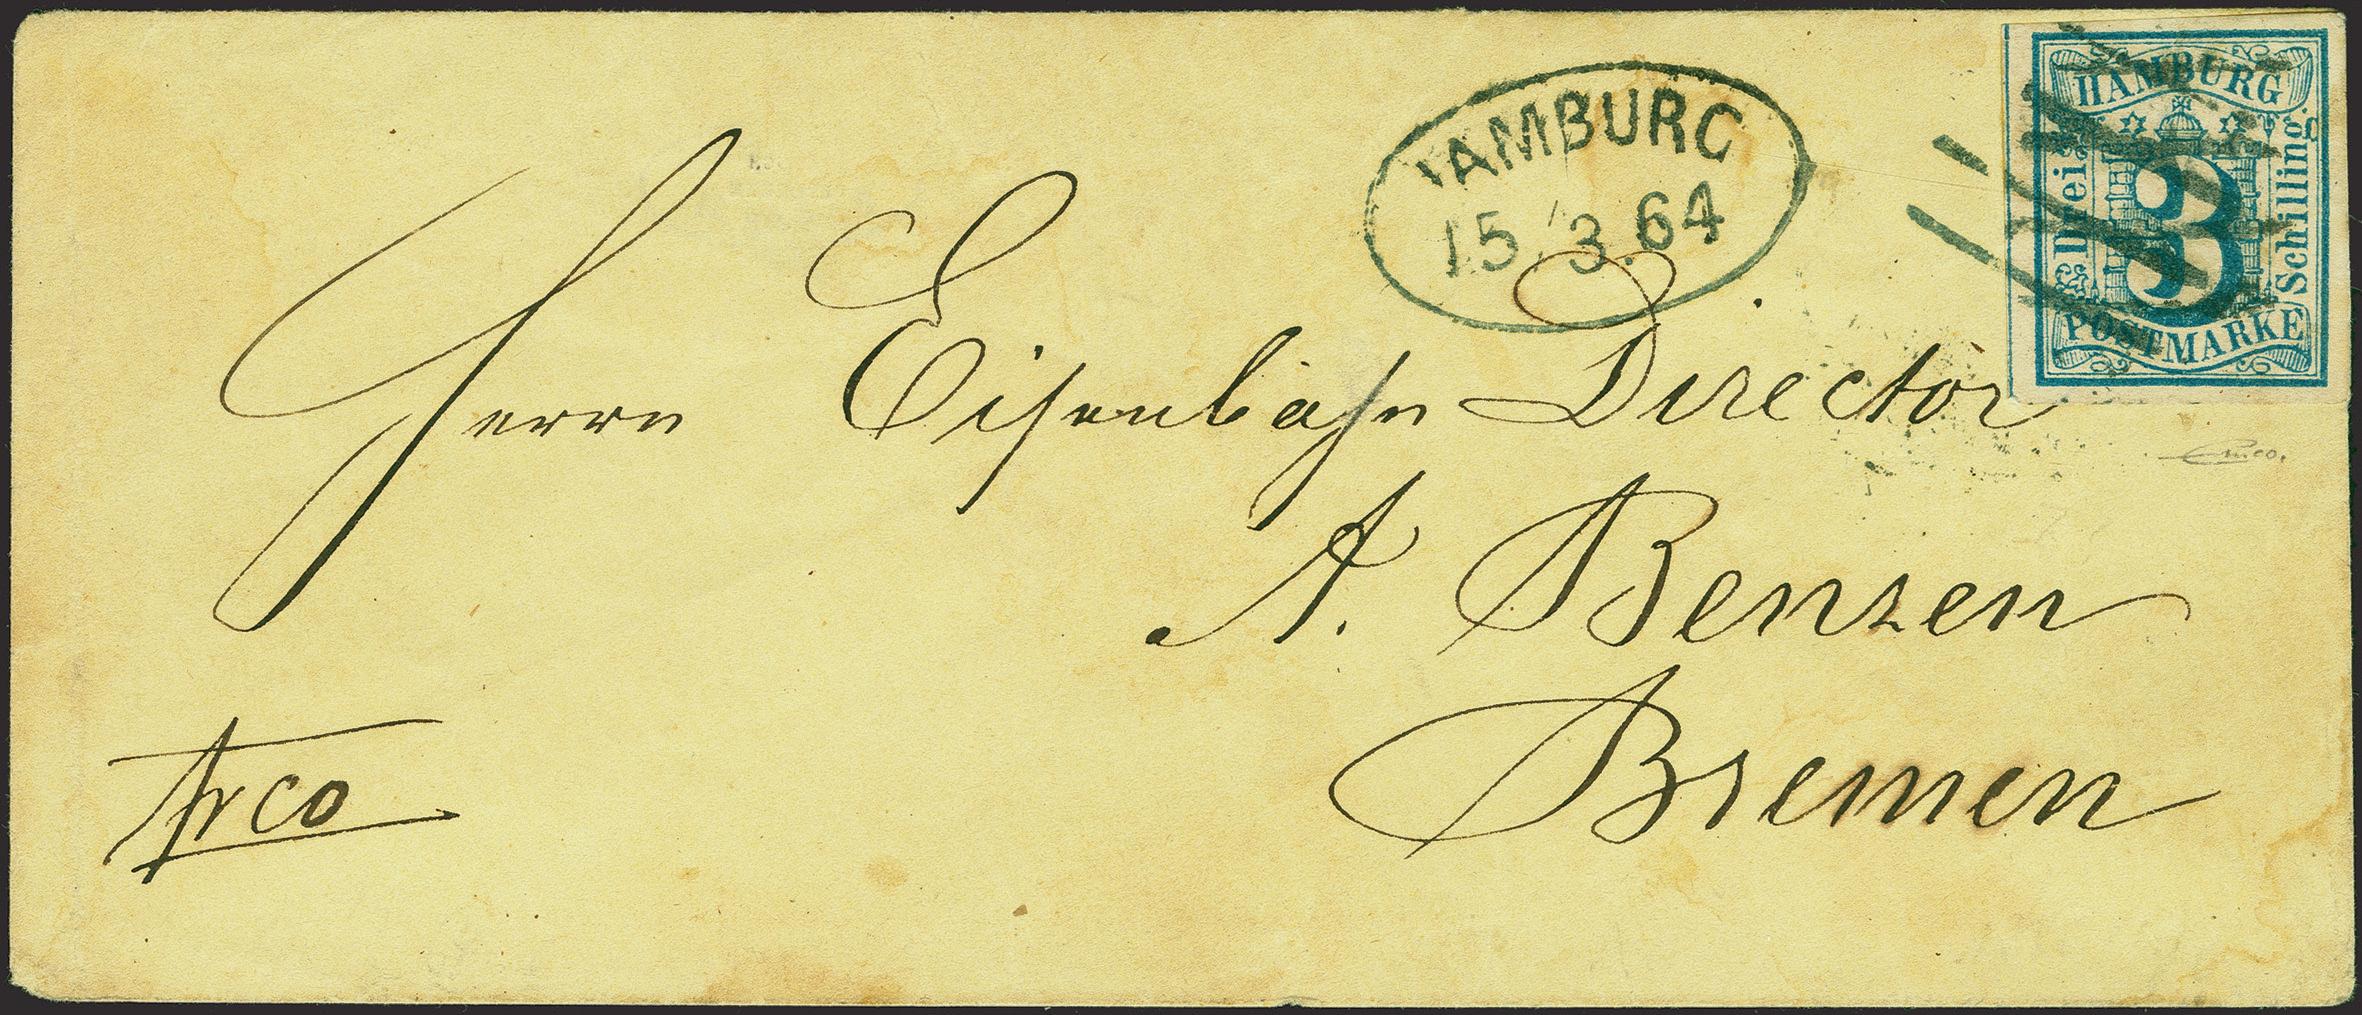 HAMBURG
15/3.64
HAMBURG
Drei
3
Schilling
POSTMARKE
Herrn Eisenbahn Director
A. Benzen
Bremen
frco